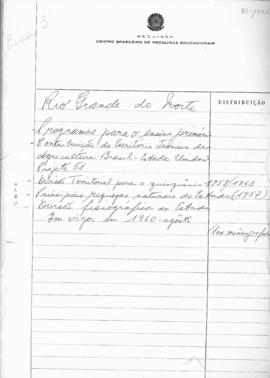 Caixa 3
M.E.C. - I.N.E.P.
CENTRO BRASILEIRO DE PESQUISAS EDUCACIONAIS
Rio Grande do Norte
DISTRIBUIÇÃO
Programas para o ensino primário
- Contribuição do Escritório Técnico de
Agricultura Brasil - Estados Unidos
Projeto
- Divisão Territorial para o quinquênio 1959/1963
- Principais riquezas naturais do Estado (1957)
- Divisão fisiográfica do Estado
Em vigor em 1960 - agosto